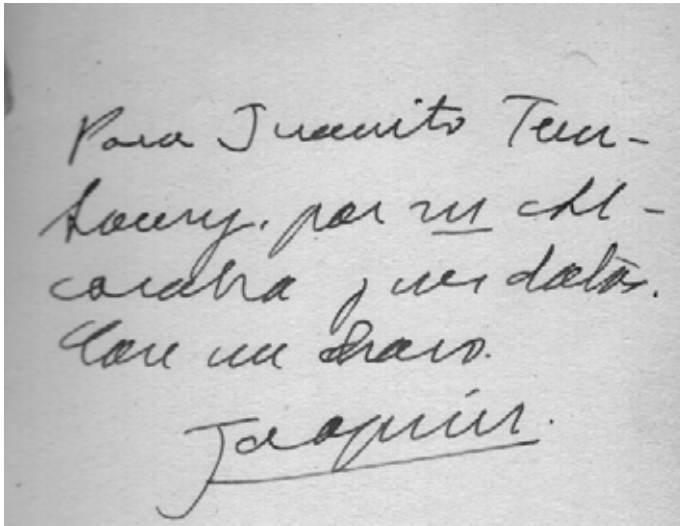 Para Juanito Tem-
boury, por su Al-
cazaba y sus datos.
Con un abrazo.
Joaquín.